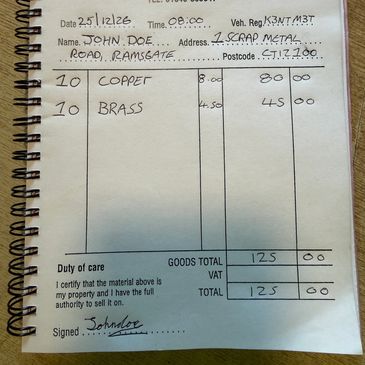 Date 25/12/26 Time 08:00 Veh. Reg K3NTM3T
Name. JOHN DOE Address. 1 SCRAP METAL
ROAD, RAMSGATE Postcode CT12 100
10 COPPER 8.00 80 00
10 BRASS 4.50 45 00
GOODS TOTAL 125 00
Duty of care VAT
I certify that the material above is
my property and I have the full
authority to sell it on.
TOTAL 125 00
Signed Johndoe